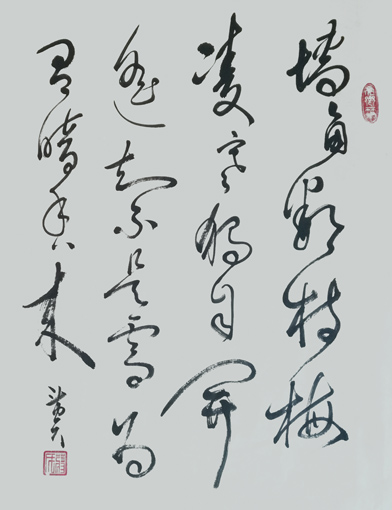 墙角数枝梅
凌寒独自開
遥知不是雪为
有暗香来